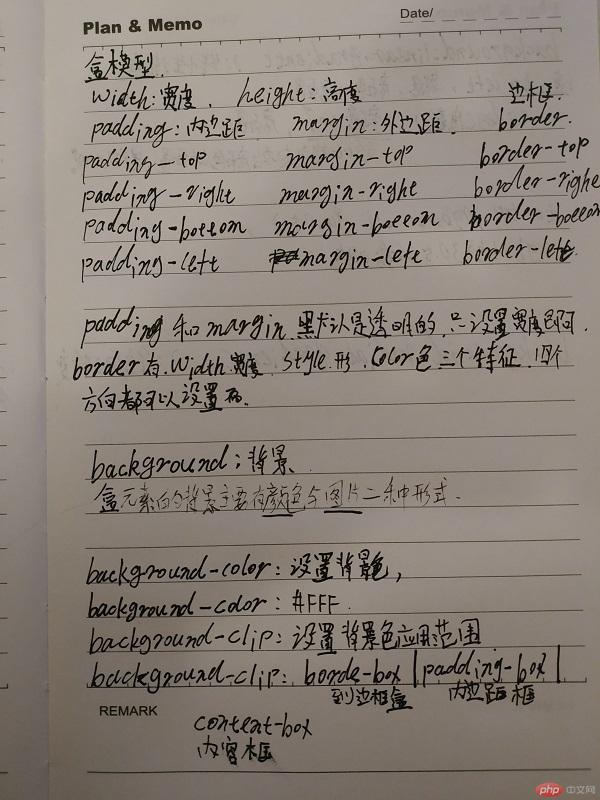 Plan & Memo
Date/
盒模型.
width:宽度. height:高度 边框.
padding:内边距 margin:外边距. border.
padding-top margin-top border-top
padding-right margin-right border-right
padding-bottom margin-bottom border-bottom
padding-left margin-left border-left
padding 和 margin 默认是透明的,只设置宽度即可.
border 有 width 宽度. style 形. color 色 三个特征. 四个
方向都可以设置
background:背景.
盒元素的背景主要有颜色与图片二种形式.
background-color:设置背景色,
background-color:#FFF.
background-clip:设置背景色应用范围
background-clip: borde-box | padding-box |
到边框盒 内边距框
REMARK
content-box
内容框
php 中文网